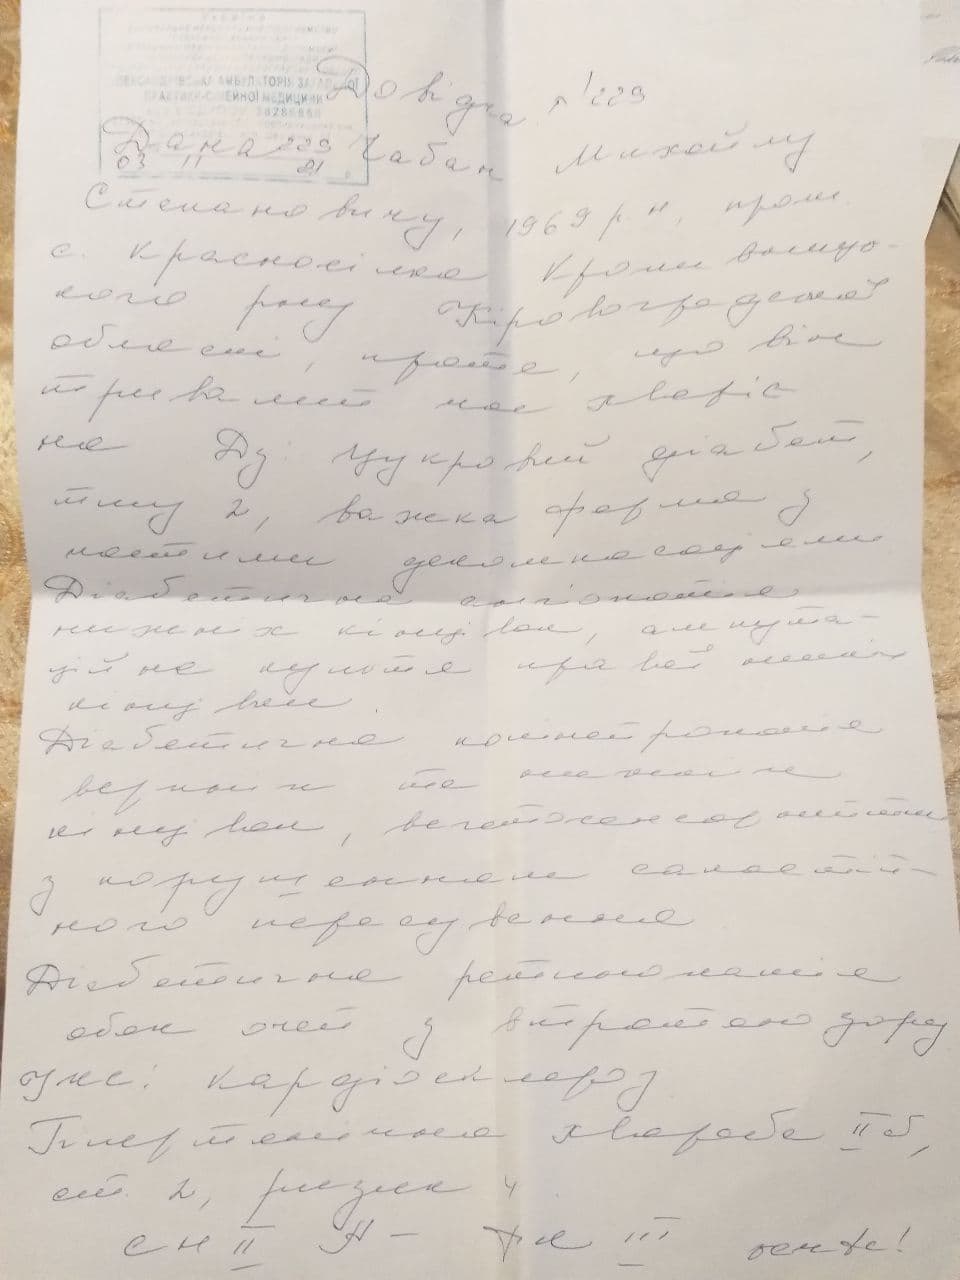 АМБУЛАТОРІЯ ЗАГАЛ
ПРАКТИКИ-СІМЕЙНОЇ МЕДИЦИНИ
Довідка №229
229
03 11 21
Дана Чабан Михайлу
Степановичу, 1969 р н, прож.
с. Красносілка
кого р-ну Кіровоградської
області, про те, що він
тривалий час хворіє
на Дз: Цукровий діабет,
типу 2, важка форма з
частими декомпенсаціями
Діабетична ангіопатія
нижніх кінцівок, ампута-
ційна культя правої нижньої
кінцівки.
Діабетична полінейропатія
верхніх та нижніх
кінцівок,
з порушенням самостій-
ного пересування
Діабетична ретинопатія
обох очей з втратою зору
ІХС: Кардіосклероз
Гіпертонічна хвороба II
ст. 2, ризик 4
СН II А – ФК III